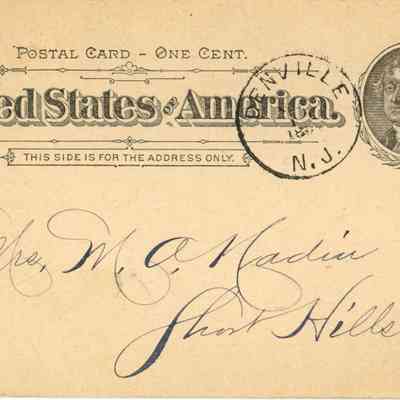 POSTAL CARD - ONE CENT.
ed States of America.
THIS SIDE IS FOR THE ADDRESS ONLY.
DENVILLE
N.J.
Mrs. M. A. Nadin
Short Hills